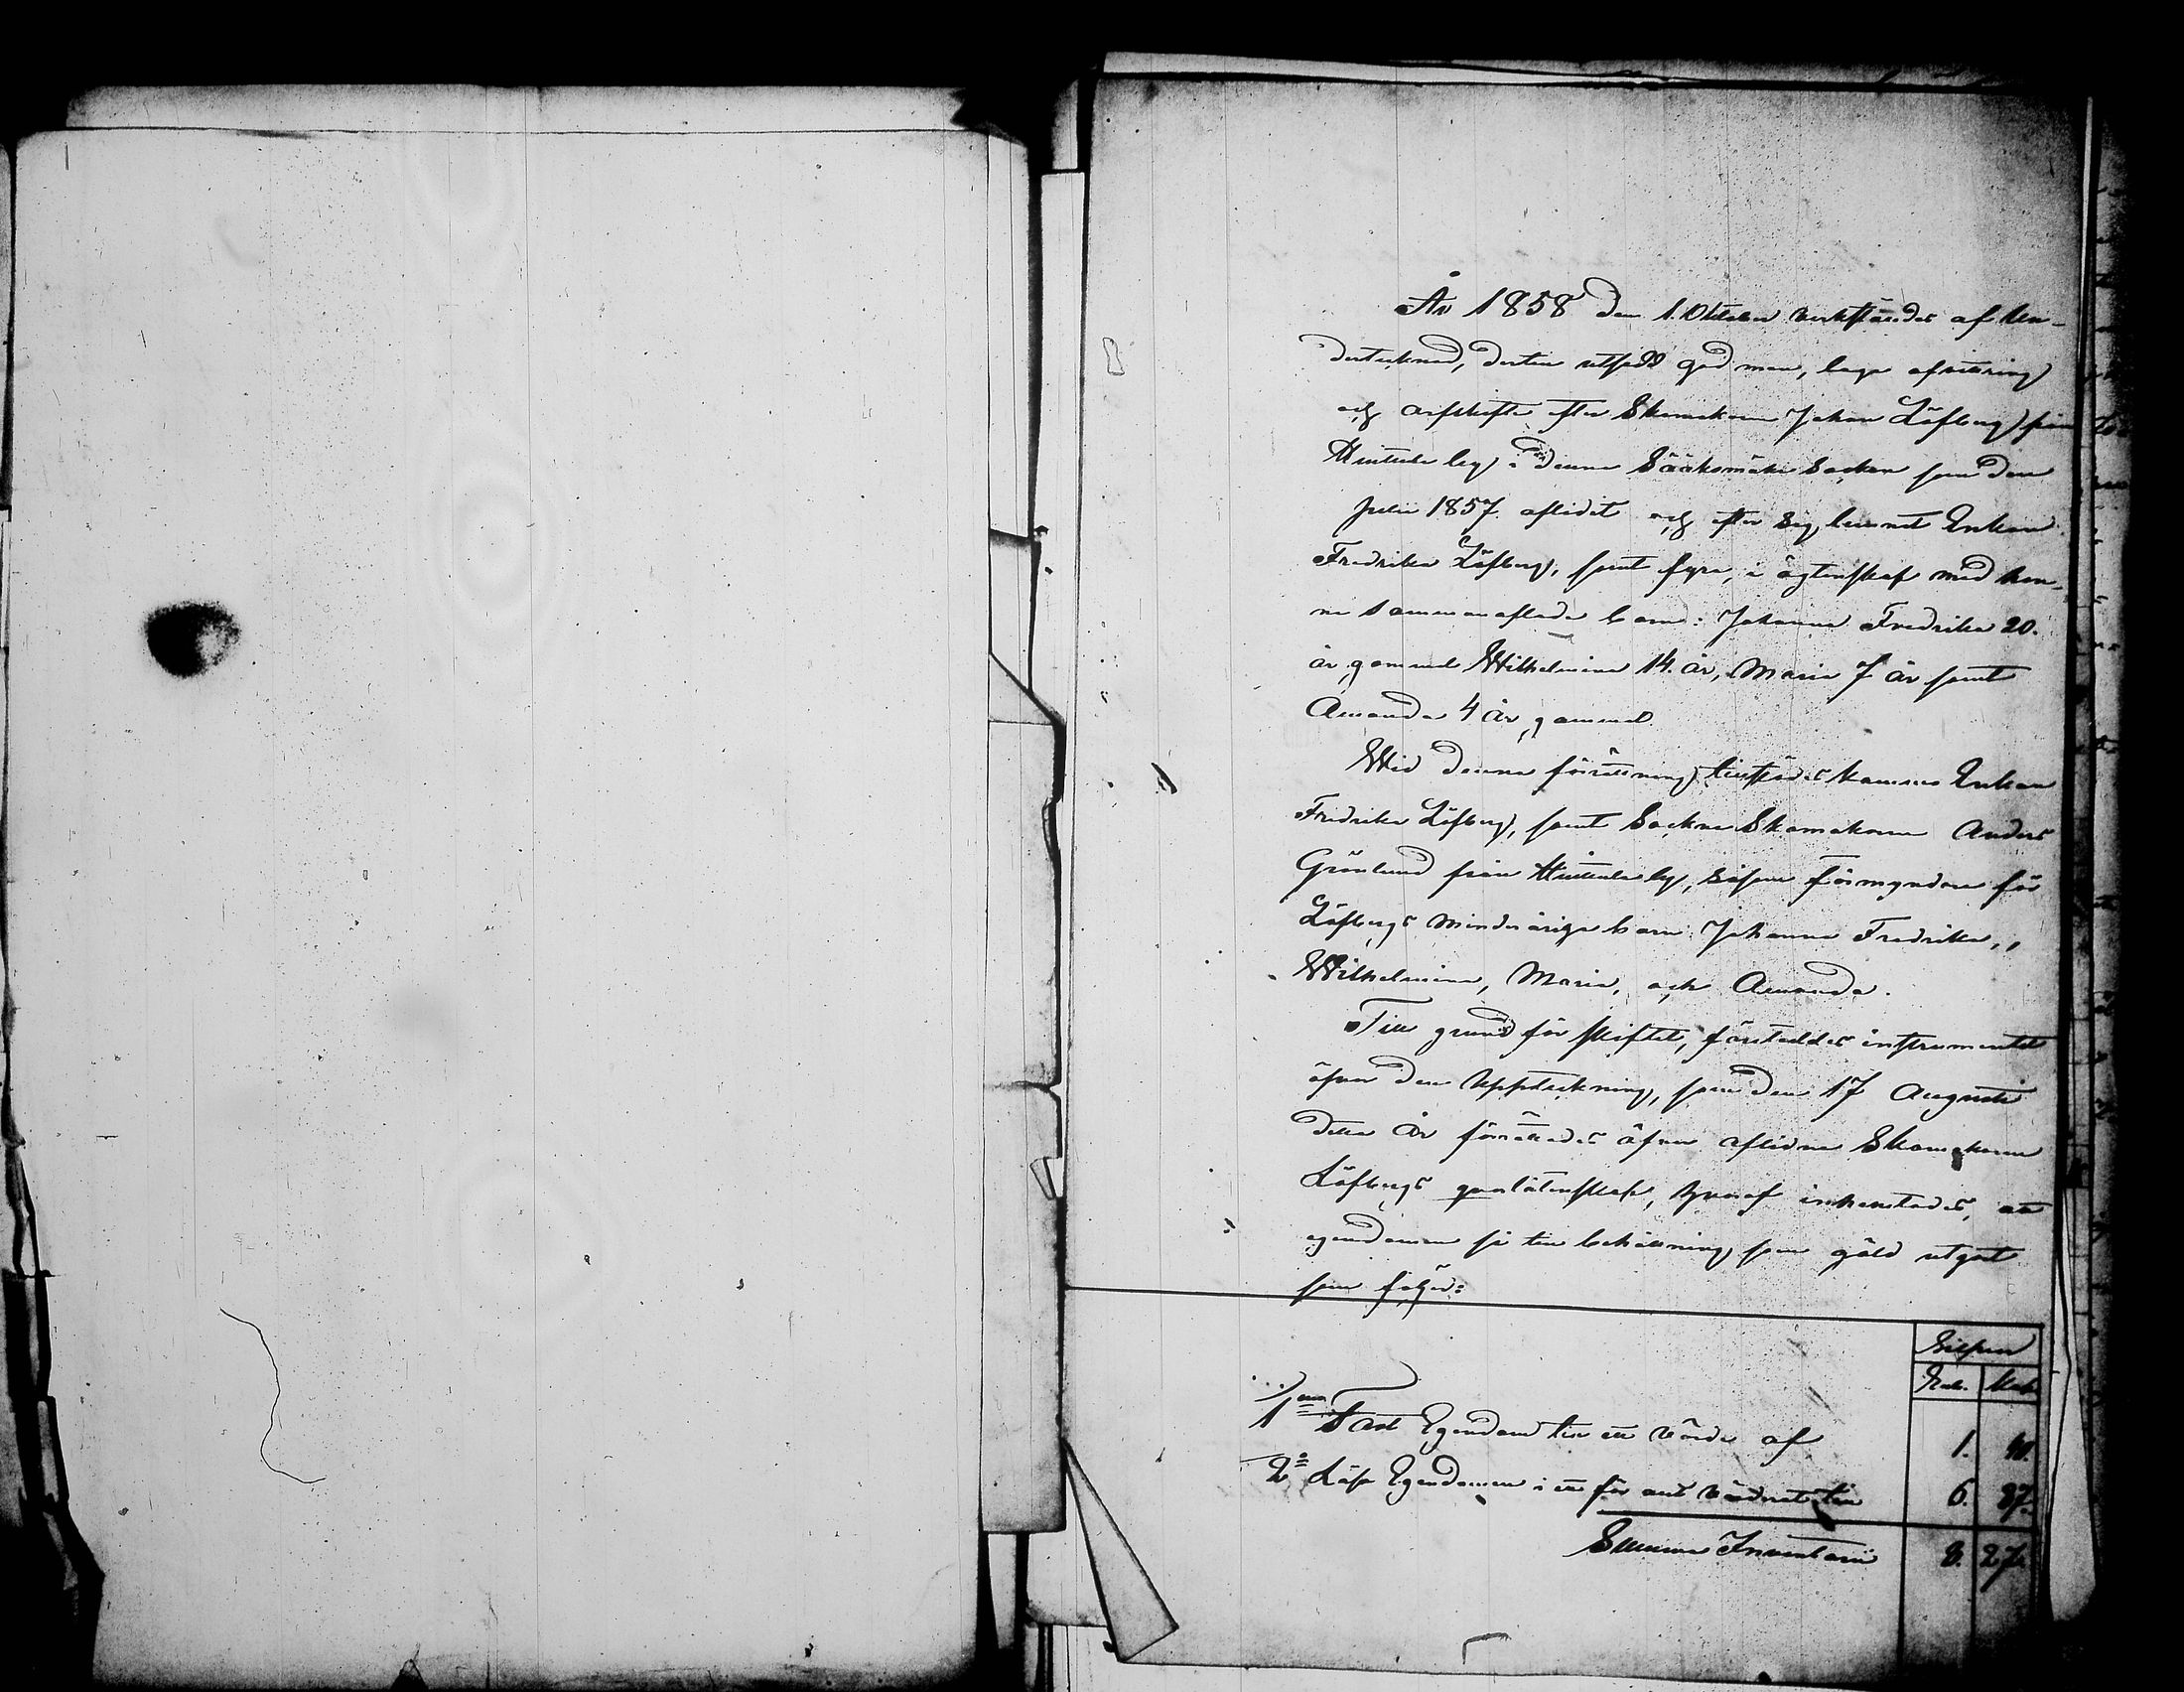 År 1858 den 1. October verkställdes af Un-
dertecknad, dertill utsedd god man, laga afvittring
och arfskifte efter Skomakaren Johan Löfberg från
Huittula by i denna Sääksmäki Socken som den
Julii 1857 aflidit och efter sig lemnat Enkan
Fredrika Löfberg, samt fyra, i ägtenskap med hen-
ne sammanaflade barn: Johanna Fredrika 20.
år gammal Wilhelmina 14. år, Maria 7 år samt
Amanda 4 år gammal.
Wid denna förrättning tillstädes kommo Enkan
Fredrika Löfberg, samt Sockne Skomakaren Anders
Grönlund från Huittula by, såsom förmyndare för
Löfbergs minderåriga barn: Johanna Fredrika,
Wilhelmina, Maria, och Amanda.
Till grund för skiftet, företeddes instrumentet
öfver den Uppteckning, som den 17 Augusti
detta år förrättades öfver aflidne Skomakaren
Löfbergs qvarlåtenskap, hvaraf inhemtades, att
egendomen så till behållning som gäld utgöt
som följer:
Silfver
Rub. Kop.
1mo Fast Egendom till ett värde af 1. 40.
2o Lösa Egendomen i ett för allt värderat till 6. 87.
Summa Inventarii 8. 27.